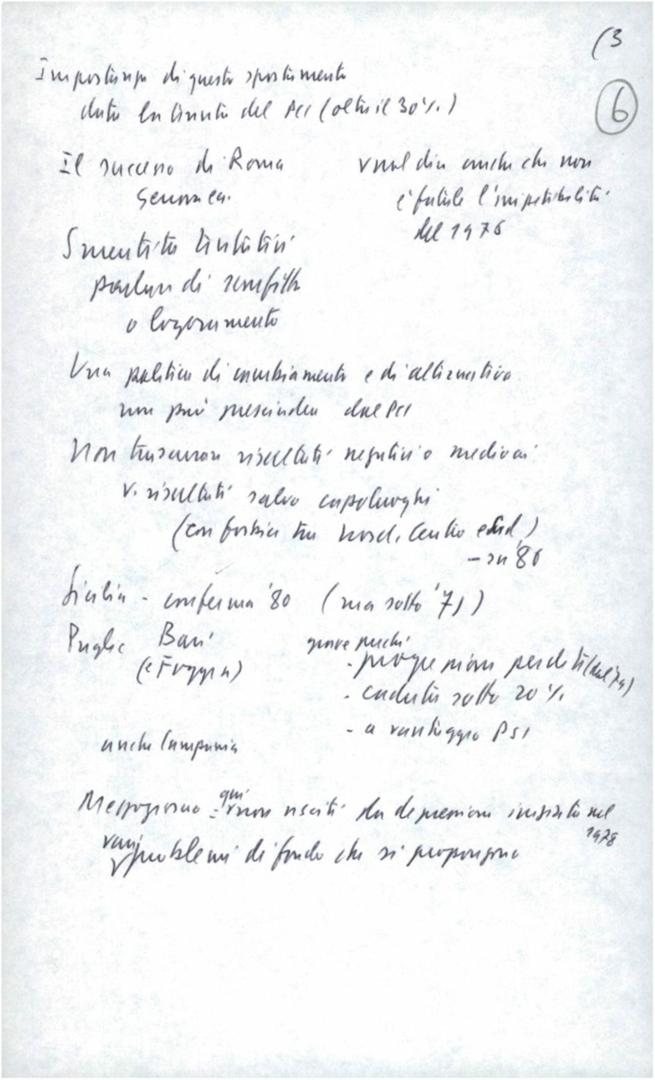 (3
6
Importanza di questo spostamento
data la tenuta del PCI (oltre il 30%)
Il successo di Roma
Genova ca.
vuol dire anche che non
è fatale l'irripetibilità
del 1976
Smentita tentativi
parlare di sconfitta
o logoramento
Una politica di cambiamento e di alternativa
non può prescindere dal PCI
Non trascurare risultati negativi o mediocri
v. risultati salvo capoluoghi
(con forbice tra nord, centro e sud)
- su '80
Sicilia - conferma '80 (ma sotto '71)
Puglie Bari
(e Foggia)
grave perché
- progressione perdite
- caduta sotto 20%
- a vantaggio PSI
anche Campania
Mezzogiorno - qui non usciti da depressione iniziata nel
1978
vari problemi di fondo che si propongono